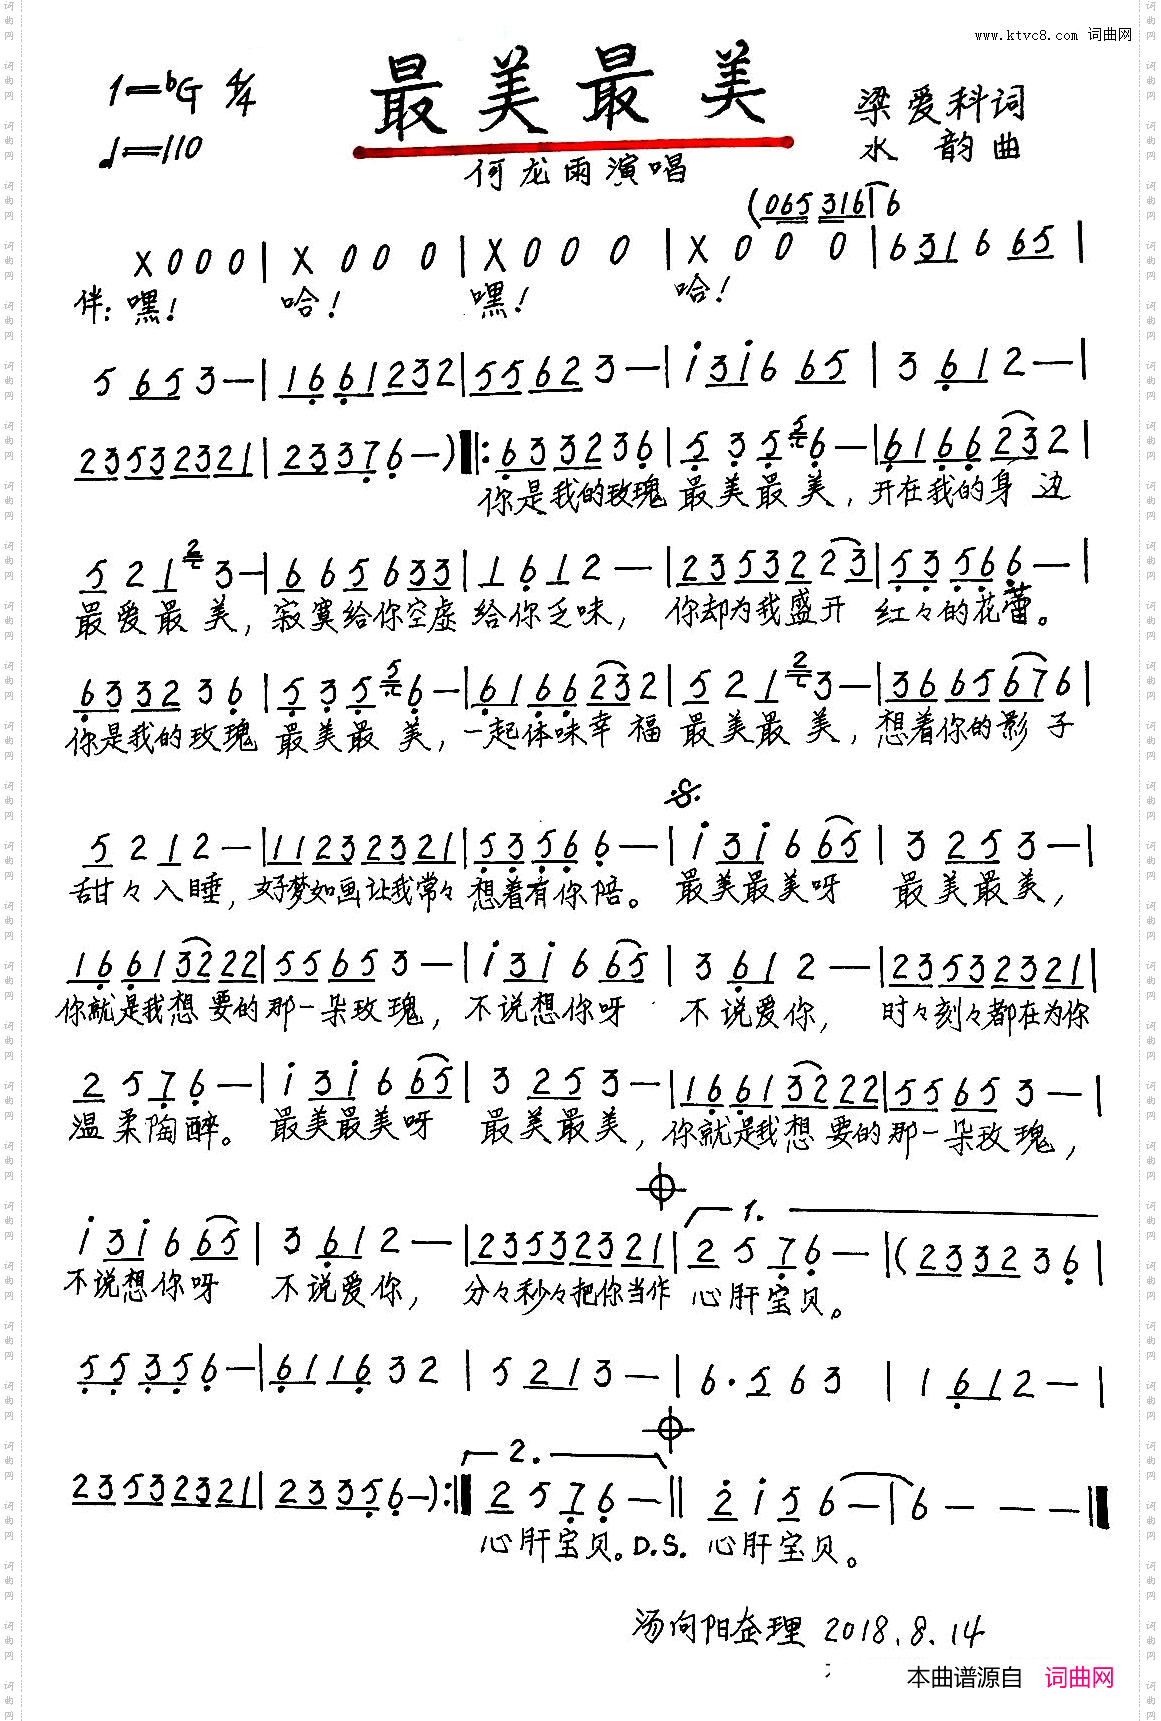 www.ktvc8.com 词曲网
1=bG 4/4
最美最美
梁爱科词
♩=110
水 韵曲
何龙雨演唱
(065 3161 6
X 0 0 0 | X 0 0 0 | X 0 0 0 | X 0 0 0 | 6 31 6 65 |
伴：嘿！ 哈！ 嘿！ 哈！
5 65 3 — | 16 61 23 2 | 55 62 3 — | i 3i 6 65 | 3 61 2 — |
23532321 | 23376 — ) ‖: 6332 36 | 5 35 6 — | 6166 232 |
你是我的玫瑰 最美最美，开在我的身边
5 2 1 3 — | 6 65 633 | 1 61 2 — | 2353223 | 53566 — |
最爱最美，寂寞给你空虚 给你乏味， 你却为我盛开 红々的花蕾。
6332 36 | 5 35 6 — | 6166 232 | 5 2 1 3 — | 3665676 |
你是我的玫瑰 最美最美，一起体味幸福 最美最美，想着你的影子
5 2 1 2 — | 11232321 | 53566 — | i 3i 6 65 | 3 25 3 — |
甜々入睡，好梦如画让我常々 想着有你陪。 最美最美呀 最美最美，
16613222 | 5565 3 — | i 3i 6 65 | 3 61 2 — | 23532321 |
你就是我想要的那一朵玫瑰，不说想你呀 不说爱你， 时々刻々都在为你
2 5 7 6 — | i 3i 6 65 | 3 25 3 — | 16613222 | 5565 3 — |
温柔陶醉。 最美最美呀 最美最美，你就是我想要的那一朵玫瑰，
1.
i 3i 6 65 | 3 61 2 — | 23532321 | 2 5 7 6 — | (2332 3 6 |
不说想你呀 不说爱你， 分々秒々把你当作 心肝宝贝。
55356 — | 6116 3 2 | 5 21 3 — | 6·5 6 3 | 1 61 2 — |
2.
23532321 | 23356 — ) :‖ 2 5 7 6 — ‖ 2 i 5 6 — | 6 — — — ‖
心肝宝贝。D.S. 心肝宝贝。
汤向阳奎理 2018.8.14
本曲谱源自 词曲网